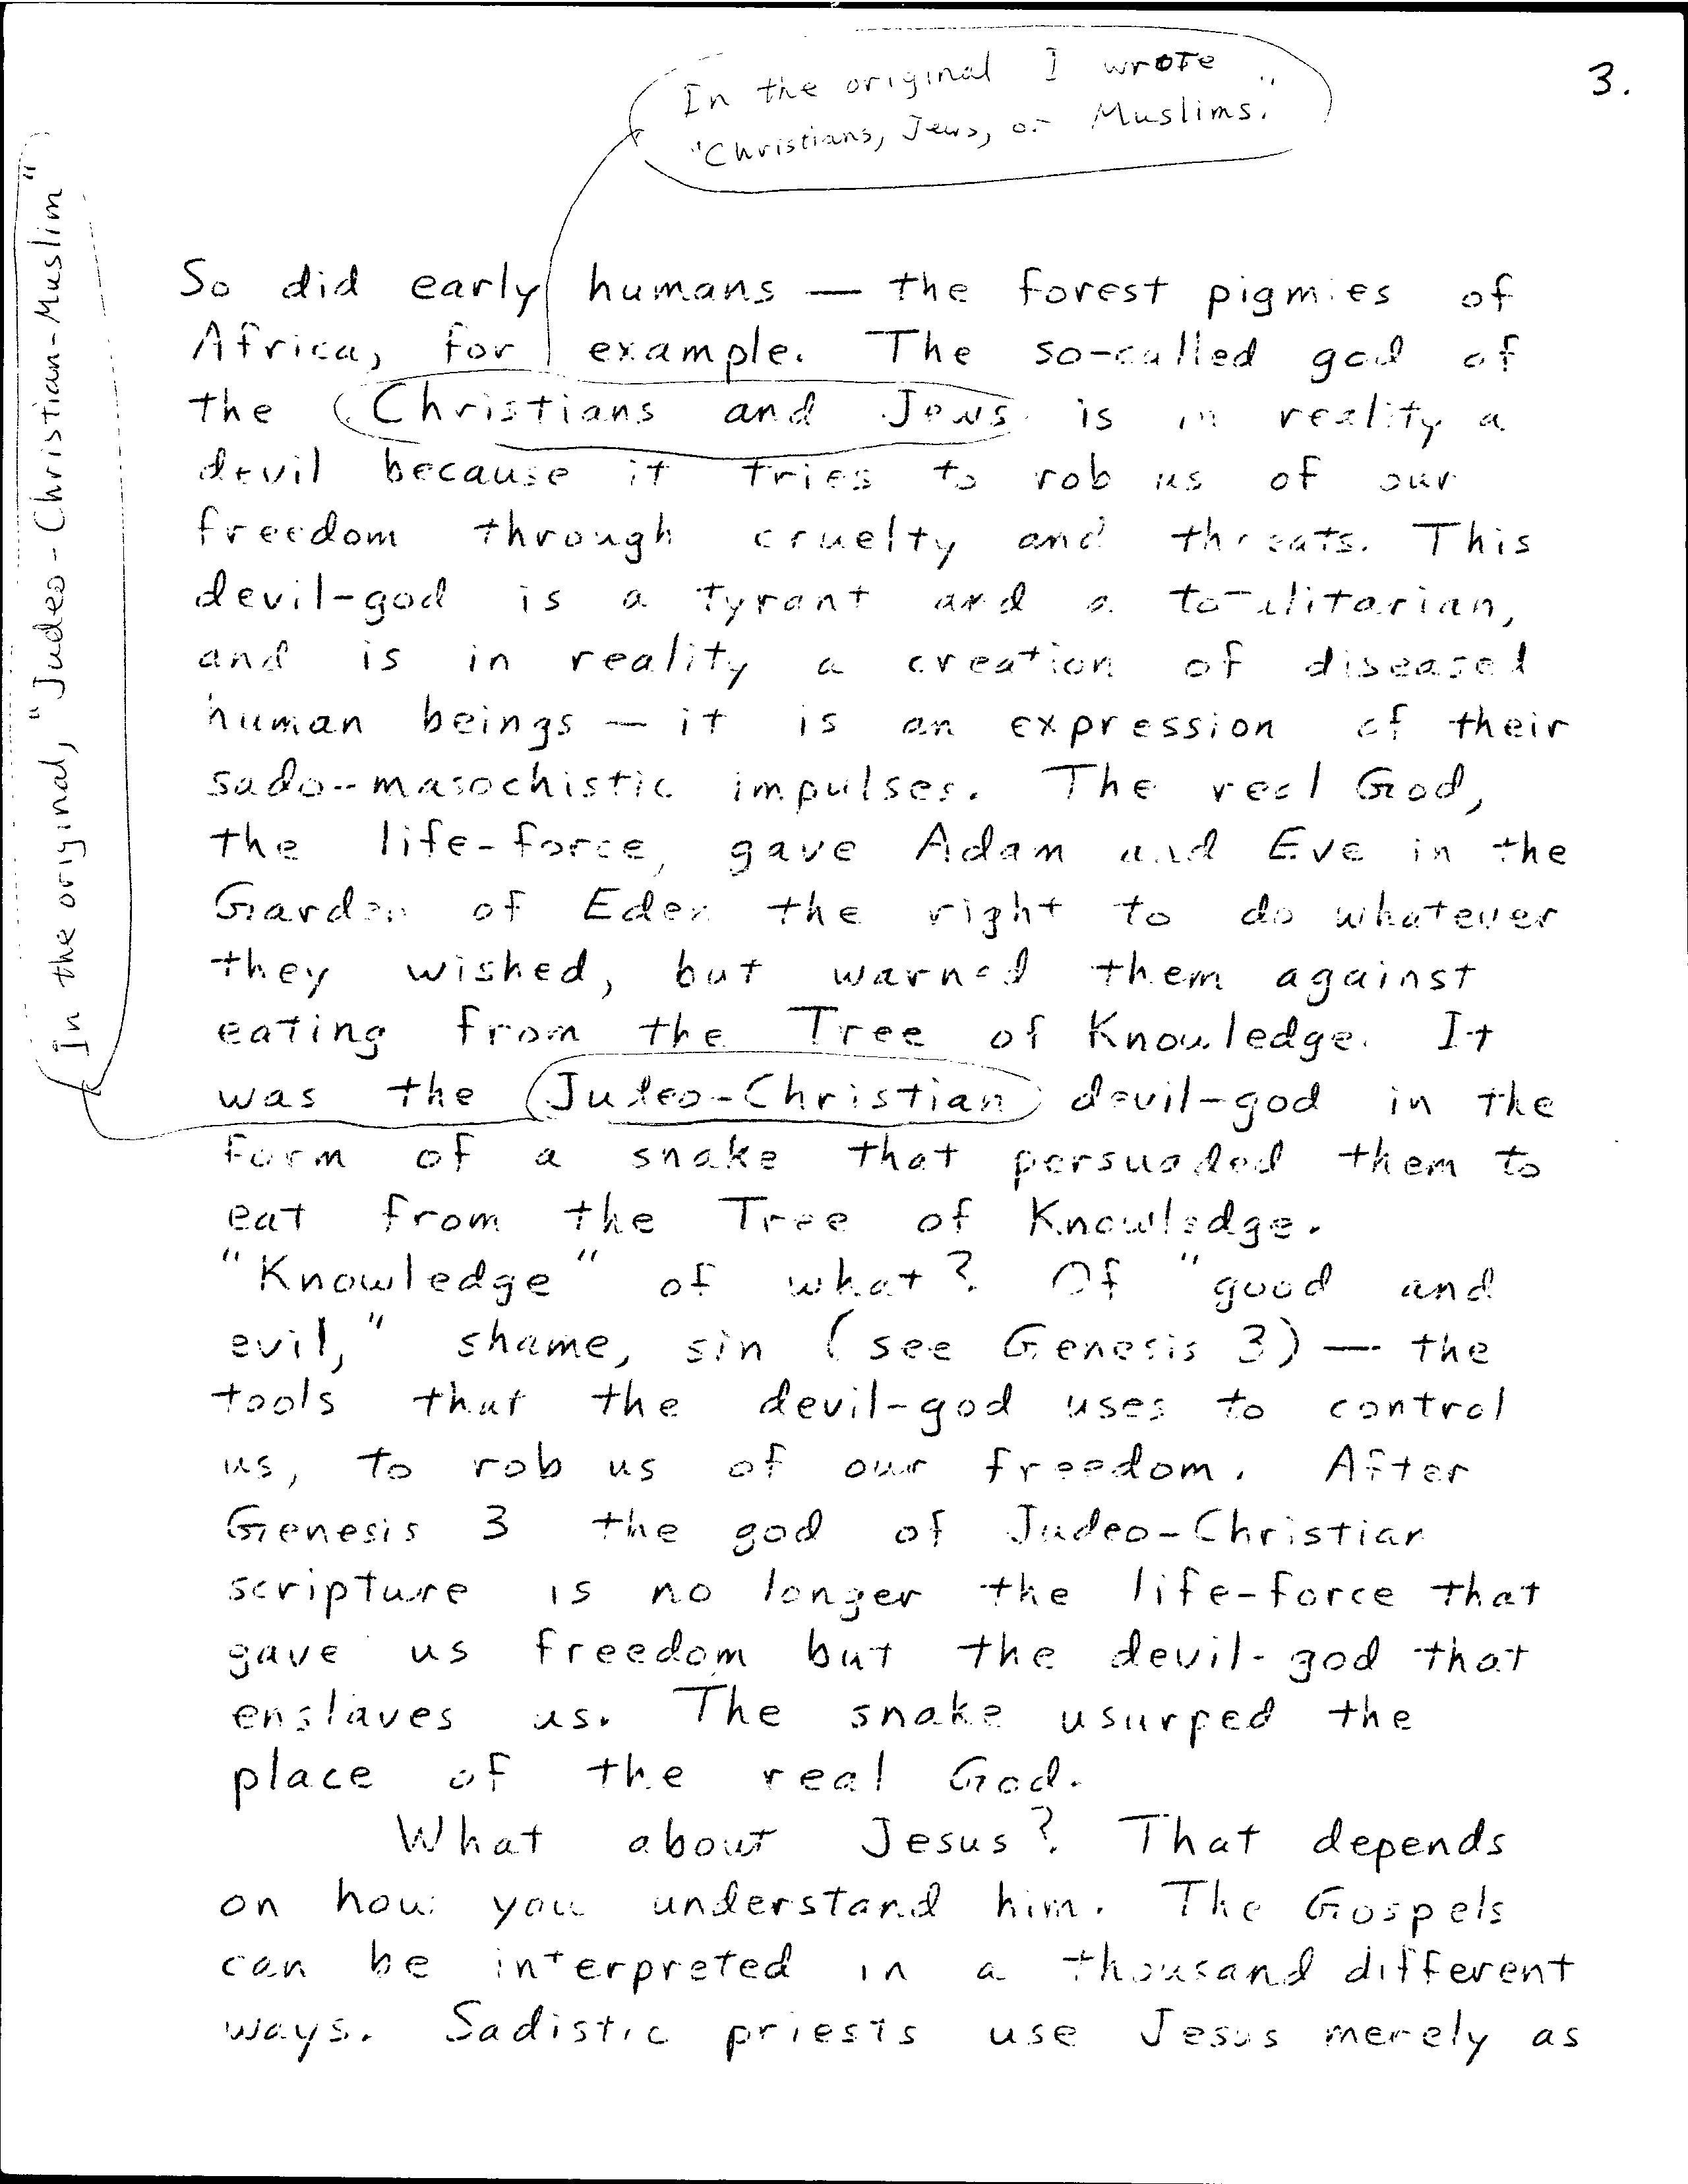 In the original I wrote
"Christians, Jews, or Muslims."
3.
In the original, "Judeo-Christian-Muslim"
So did early humans — the forest pigmies of
Africa, for example. The so-called god of
the Christians and Jews is in reality a
devil because it tries to rob us of our
freedom through cruelty and threats. This
devil-god is a tyrant and a totalitarian,
and is in reality a creation of diseased
human beings — it is an expression of their
sado-masochistic impulses. The real God,
the life-force, gave Adam and Eve in the
Garden of Eden the right to do whatever
they wished, but warned them against
eating from the Tree of Knowledge. It
was the Judeo-Christian devil-god in the
form of a snake that persuaded them to
eat from the Tree of Knowledge.
"Knowledge" of what? Of "good and
evil," shame, sin (see Genesis 3) — the
tools that the devil-god uses to control
us, to rob us of our freedom. After
Genesis 3 the god of Judeo-Christian
scripture is no longer the life-force that
gave us freedom but the devil-god that
enslaves us. The snake usurped the
place of the real God.
What about Jesus? That depends
on how you understand him. The Gospels
can be interpreted in a thousand different
ways. Sadistic priests use Jesus merely as